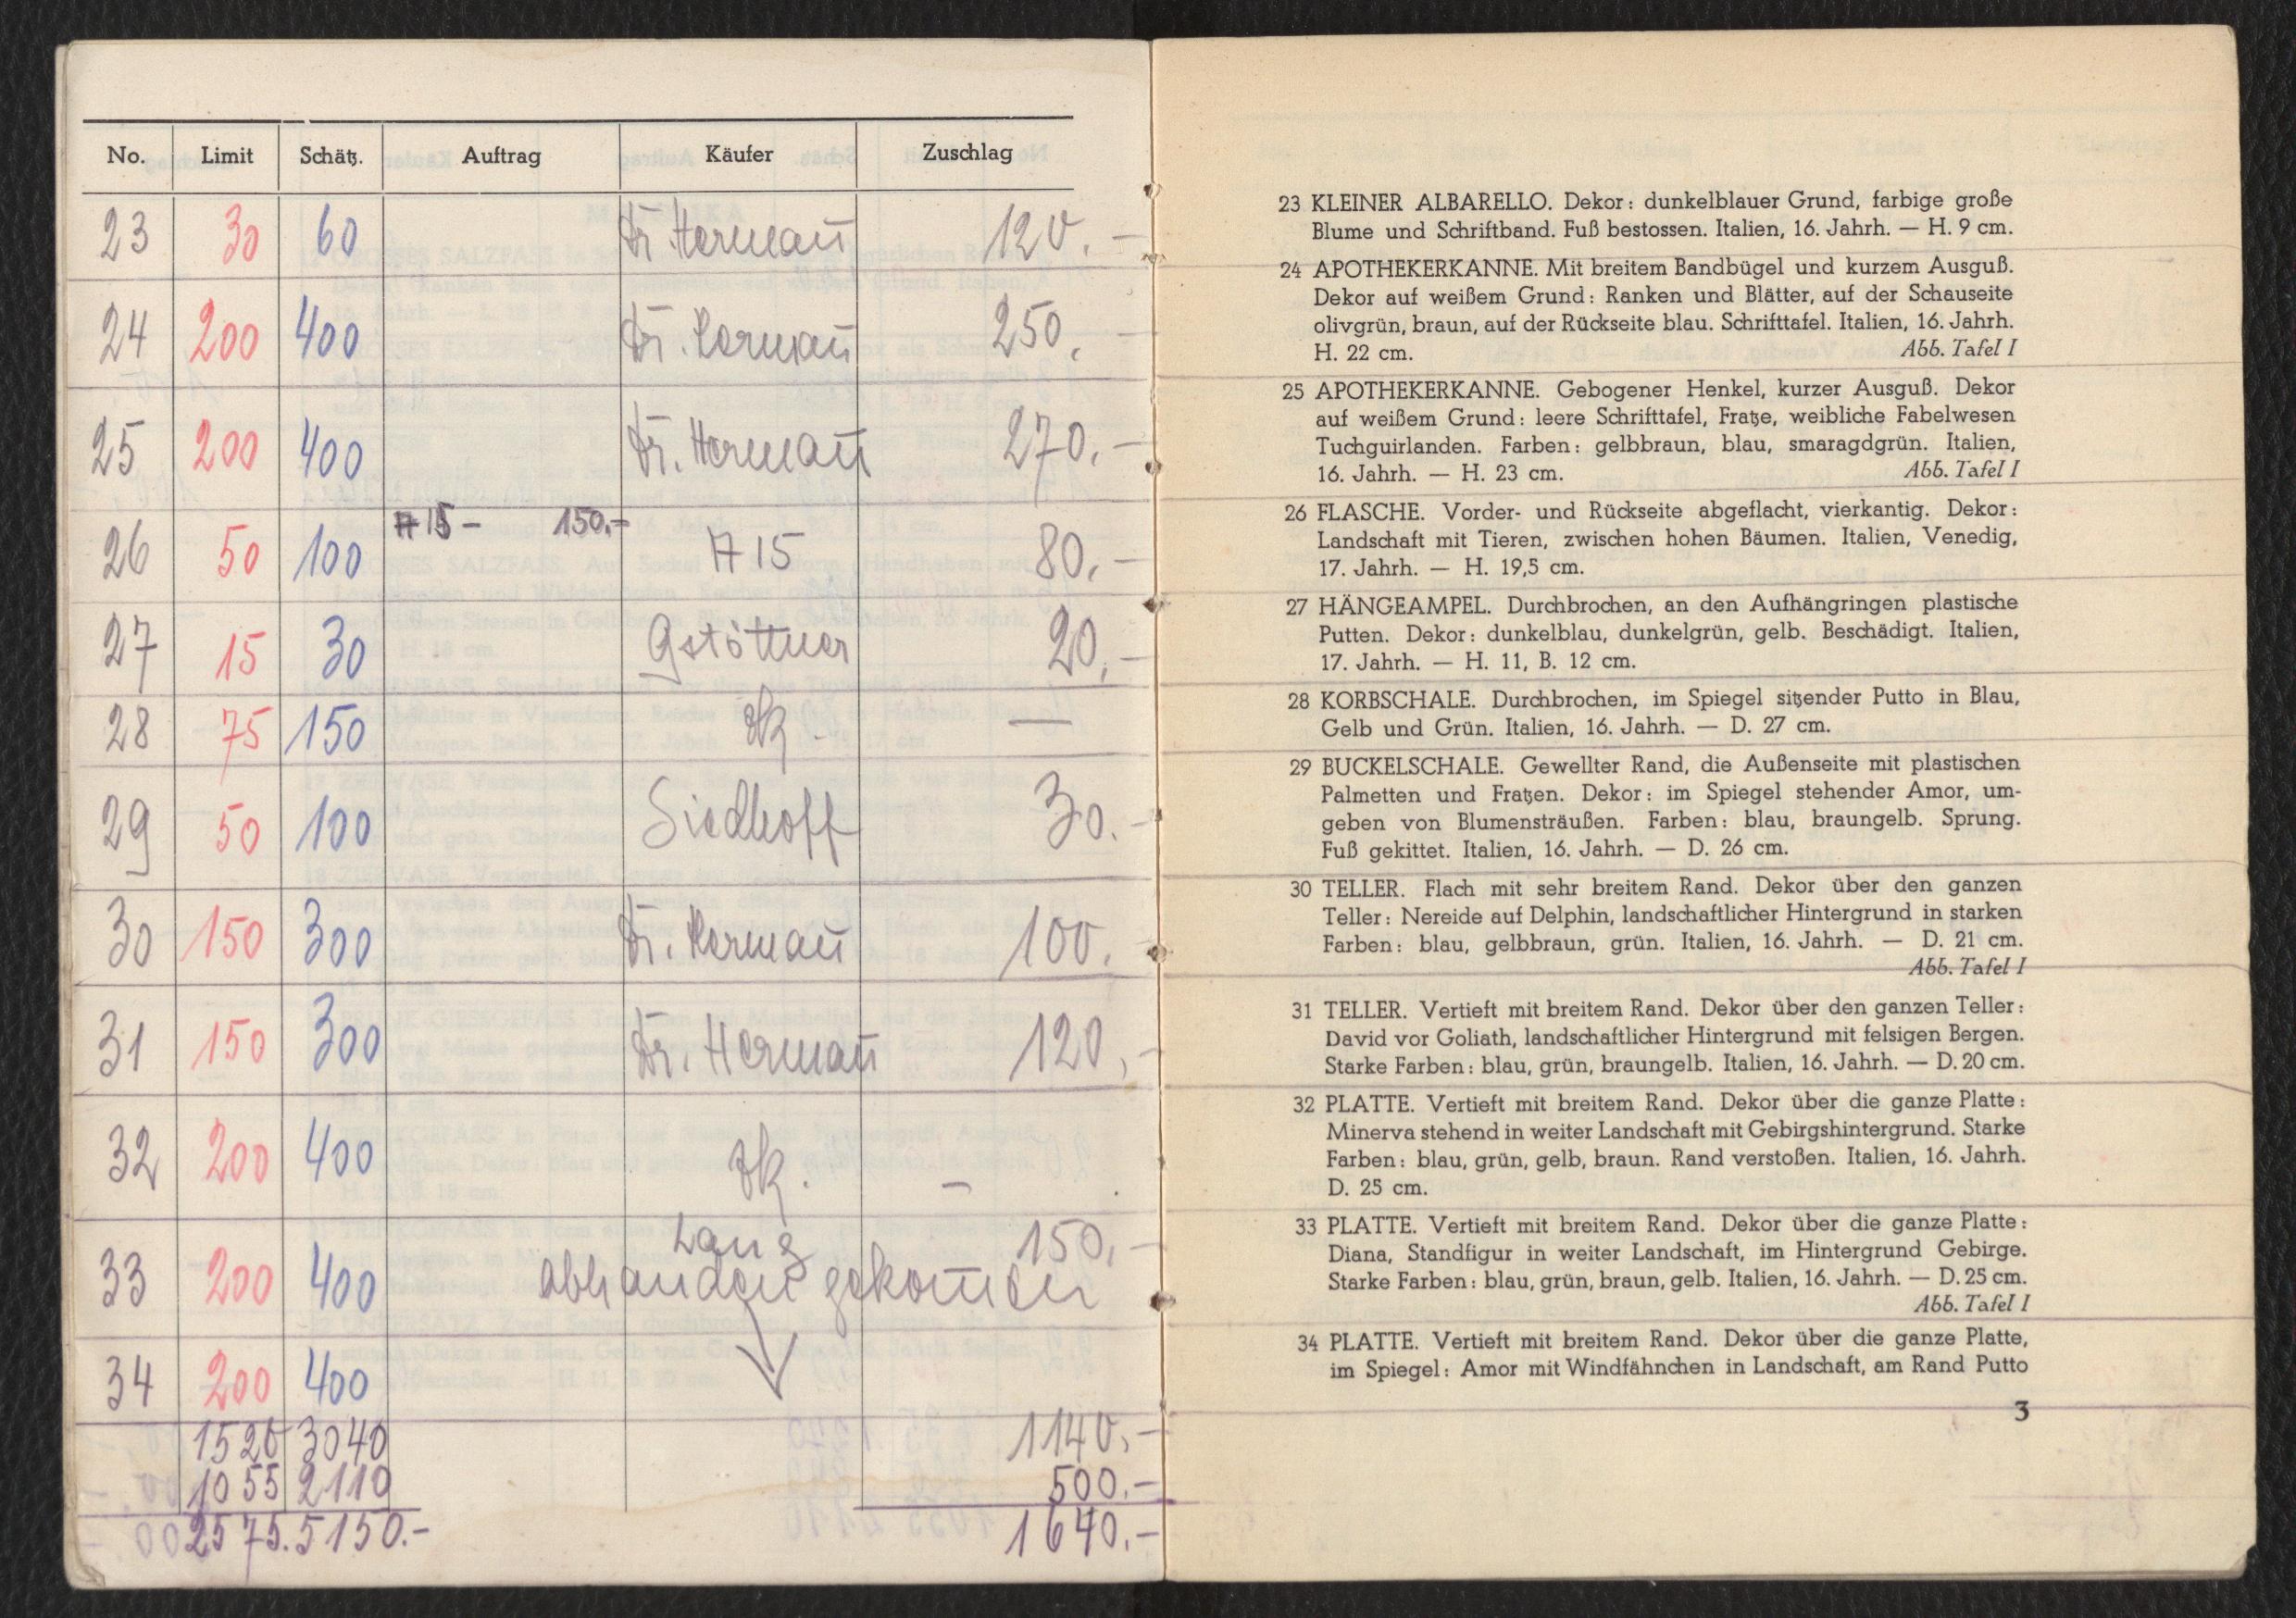 No. Limit Schätz. Auftrag Käufer Zuschlag
23 30 60 Dr. Hermañ 120.-
24 200 400 Dr. Hermañ 250,-
25 200 400 Dr. Hermañ 270,-
A 15 - 150.-
26 50 100 A 15 80,-
27 15 30 Gstöttner 20,-
28 75 150 —
29 50 100 Siedhoff 30.-
30 150 300 Dr. Hermañ 100.
31 150 300 Dr. Hermañ 120,-
32 200 400 –
Lang 150,-
33 200 400 abhanden gekom̄en
34 200 400
1520 3040 1140,-
1055 2110 500.-
2575. 5150.- 1640.-
23 KLEINER ALBARELLO. Dekor: dunkelblauer Grund, farbige große
Blume und Schriftband. Fuß bestossen. Italien, 16. Jahrh. — H. 9 cm.
24 APOTHEKERKANNE. Mit breitem Bandbügel und kurzem Ausguß.
Dekor auf weißem Grund: Ranken und Blätter, auf der Schauseite
olivgrün, braun, auf der Rückseite blau. Schrifttafel. Italien, 16. Jahrh.
H. 22 cm. Abb. Tafel I
25 APOTHEKERKANNE. Gebogener Henkel, kurzer Ausguß. Dekor
auf weißem Grund: leere Schrifttafel, Fratze, weibliche Fabelwesen
Tuchguirlanden. Farben: gelbbraun, blau, smaragdgrün. Italien,
16. Jahrh. — H. 23 cm. Abb. Tafel I
26 FLASCHE. Vorder- und Rückseite abgeflacht, vierkantig. Dekor:
Landschaft mit Tieren, zwischen hohen Bäumen. Italien, Venedig,
17. Jahrh. — H. 19,5 cm.
27 HÄNGEAMPEL. Durchbrochen, an den Aufhängringen plastische
Putten. Dekor: dunkelblau, dunkelgrün, gelb. Beschädigt. Italien,
17. Jahrh. — H. 11, B. 12 cm.
28 KORBSCHALE. Durchbrochen, im Spiegel sitzender Putto in Blau,
Gelb und Grün. Italien, 16. Jahrh. — D. 27 cm.
29 BUCKELSCHALE. Gewellter Rand, die Außenseite mit plastischen
Palmetten und Fratzen. Dekor: im Spiegel stehender Amor, um-
geben von Blumensträußen. Farben: blau, braungelb. Sprung.
Fuß gekittet. Italien, 16. Jahrh. — D. 26 cm.
30 TELLER. Flach mit sehr breitem Rand. Dekor über den ganzen
Teller: Nereide auf Delphin, landschaftlicher Hintergrund in starken
Farben: blau, gelbbraun, grün. Italien, 16. Jahrh. — D. 21 cm.
Abb. Tafel I
31 TELLER. Vertieft mit breitem Rand. Dekor über den ganzen Teller:
David vor Goliath, landschaftlicher Hintergrund mit felsigen Bergen.
Starke Farben: blau, grün, braungelb. Italien, 16. Jahrh. — D. 20 cm.
32 PLATTE. Vertieft mit breitem Rand. Dekor über die ganze Platte:
Minerva stehend in weiter Landschaft mit Gebirgshintergrund. Starke
Farben: blau, grün, gelb, braun. Rand verstoßen. Italien, 16. Jahrh.
D. 25 cm.
33 PLATTE. Vertieft mit breitem Rand. Dekor über die ganze Platte:
Diana, Standfigur in weiter Landschaft, im Hintergrund Gebirge.
Starke Farben: blau, grün, braun, gelb. Italien, 16. Jahrh. — D. 25 cm.
Abb. Tafel I
34 PLATTE. Vertieft mit breitem Rand. Dekor über die ganze Platte,
im Spiegel: Amor mit Windfähnchen in Landschaft, am Rand Putto
3